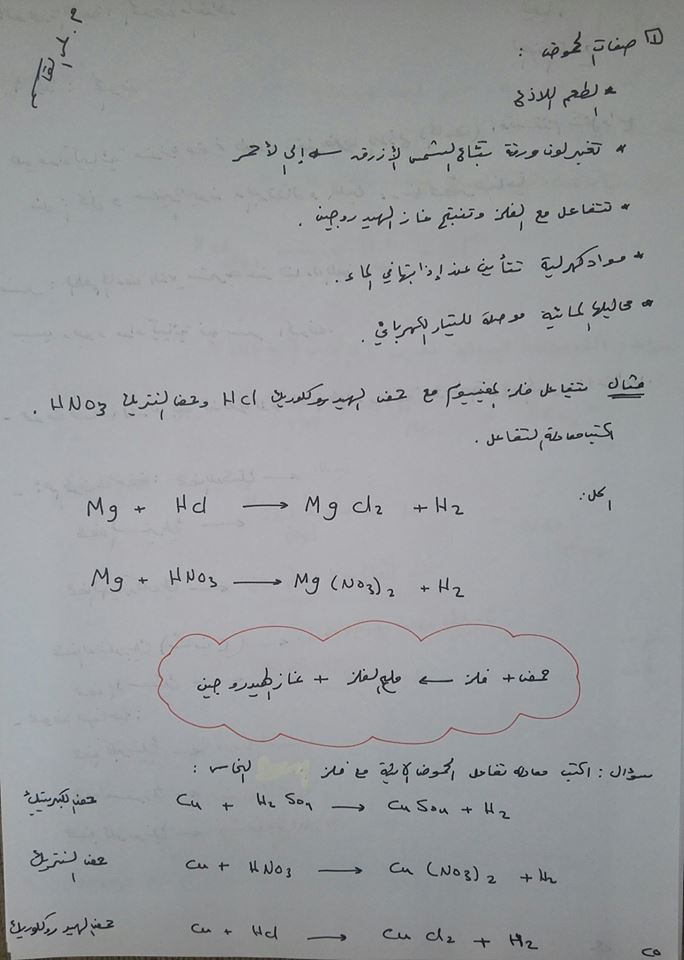 1 صفات الحموض :
* الطعم اللاذع
* تغير لون ورقة تباع الشمس الأزرق → إلى الأحمر
* تتفاعل مع الفلز وتنتج غاز الهيدروجين .
* مواد كهرلية تتأين عند إذابتها في الماء .
* محاليلها المائية موصلة للتيار الكهربائي .
مثال يتفاعل فلز المغنيسيوم مع حمض الهيدروكلوريك HCl وحمض النتريك HNO3 .
اكتب معادلة التفاعل .
الحل :
Mg + HCl → Mg Cl2 + H2
Mg + HNO3 → Mg (NO3)2 + H2
حمض + فلز ← ملح الفلز + غاز الهيدروجين
سؤال : اكتب معادلة تفاعل الحموض الآتية مع فلز النحاس :
حمض الكبريتيك Cu + H2 SO4 → Cu SO4 + H2
حمض النتريك Cu + HNO3 → Cu (NO3)2 + H2
حمض الهيدروكلوريك Cu + HCl → Cu Cl2 + H2